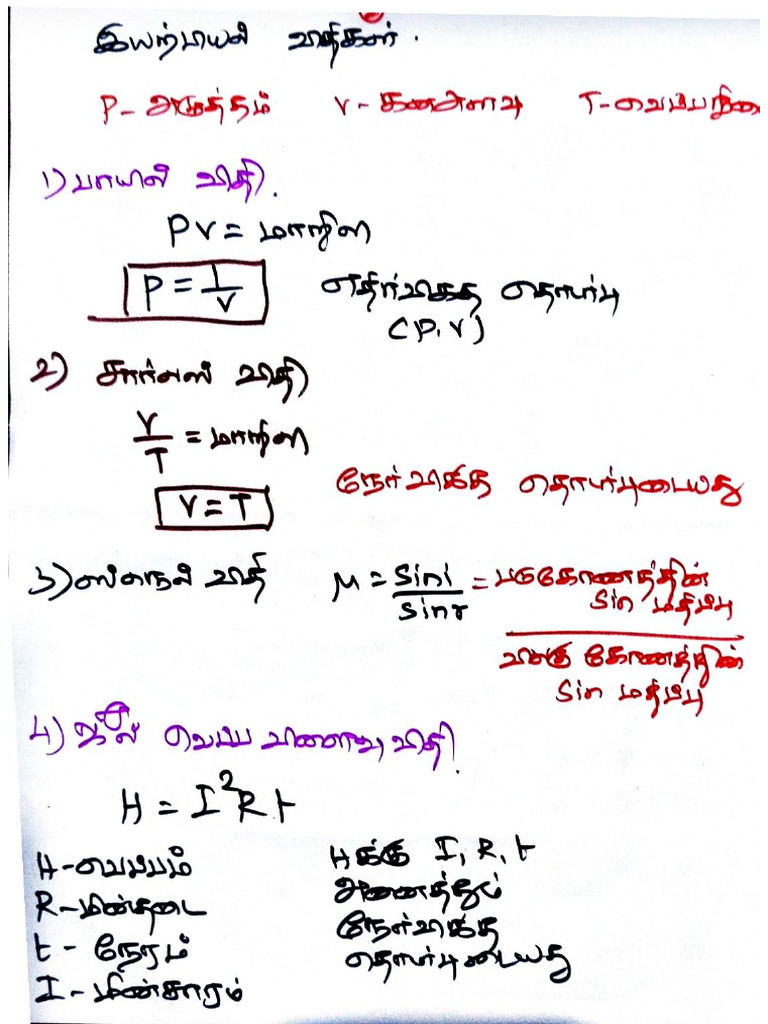 இயற்பியல் விதிகள்.
P - அழுத்தம் V - கனஅளவு T - வெப்பநிலை
1) பாயில் விதி.
PV = மாறிலி
P = 1/V எதிர்விகித தொடர்பு
(P, V)
2) சார்லஸ் விதி
V/T = மாறிலி
V = T நேர்விகித தொடர்புடையது
3) ஸ்நெல் விதி μ = sin i / sin r = படுகோணத்தின் sin மதிப்பு
விலகு கோணத்தின்
sin மதிப்பு
4) ஜூல் வெப்ப விளைவு விதி.
H = I²Rt
H - வெப்பம் H க்கு I, R, t
R - மின்தடை அனைத்தும்
t - நேரம் நேர்விகித
I - மின்சாரம் தொடர்புடையது